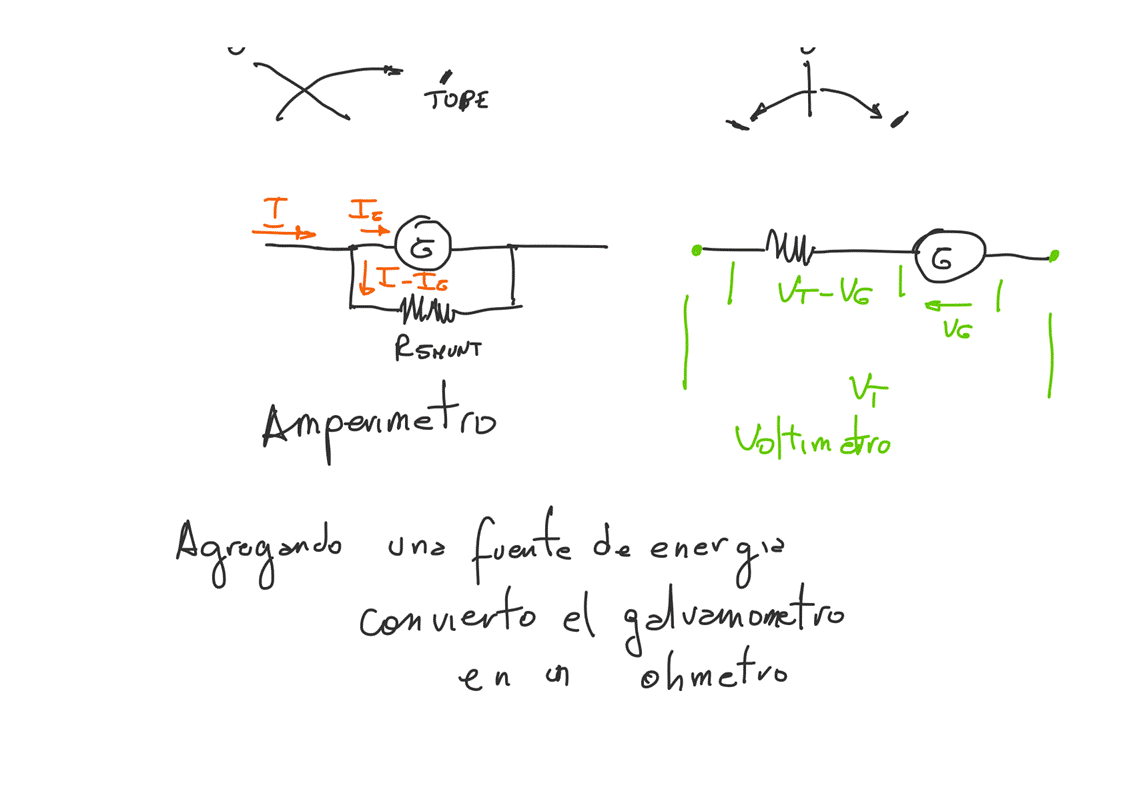 O
O
TOPE
I
I_G
G
I - I_G
RSHUNT
Amperimetro
G
V_T - V_G
V_G
V_T
Voltimetro
Agregando una fuente de energia
convierto el galvamometro
en un ohmetro